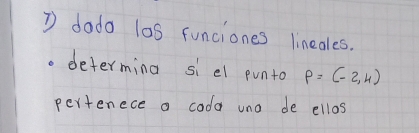 7) dado las funciones lineales.
• determina si el punto P = (-2,4)
pertenece a cada una de ellas